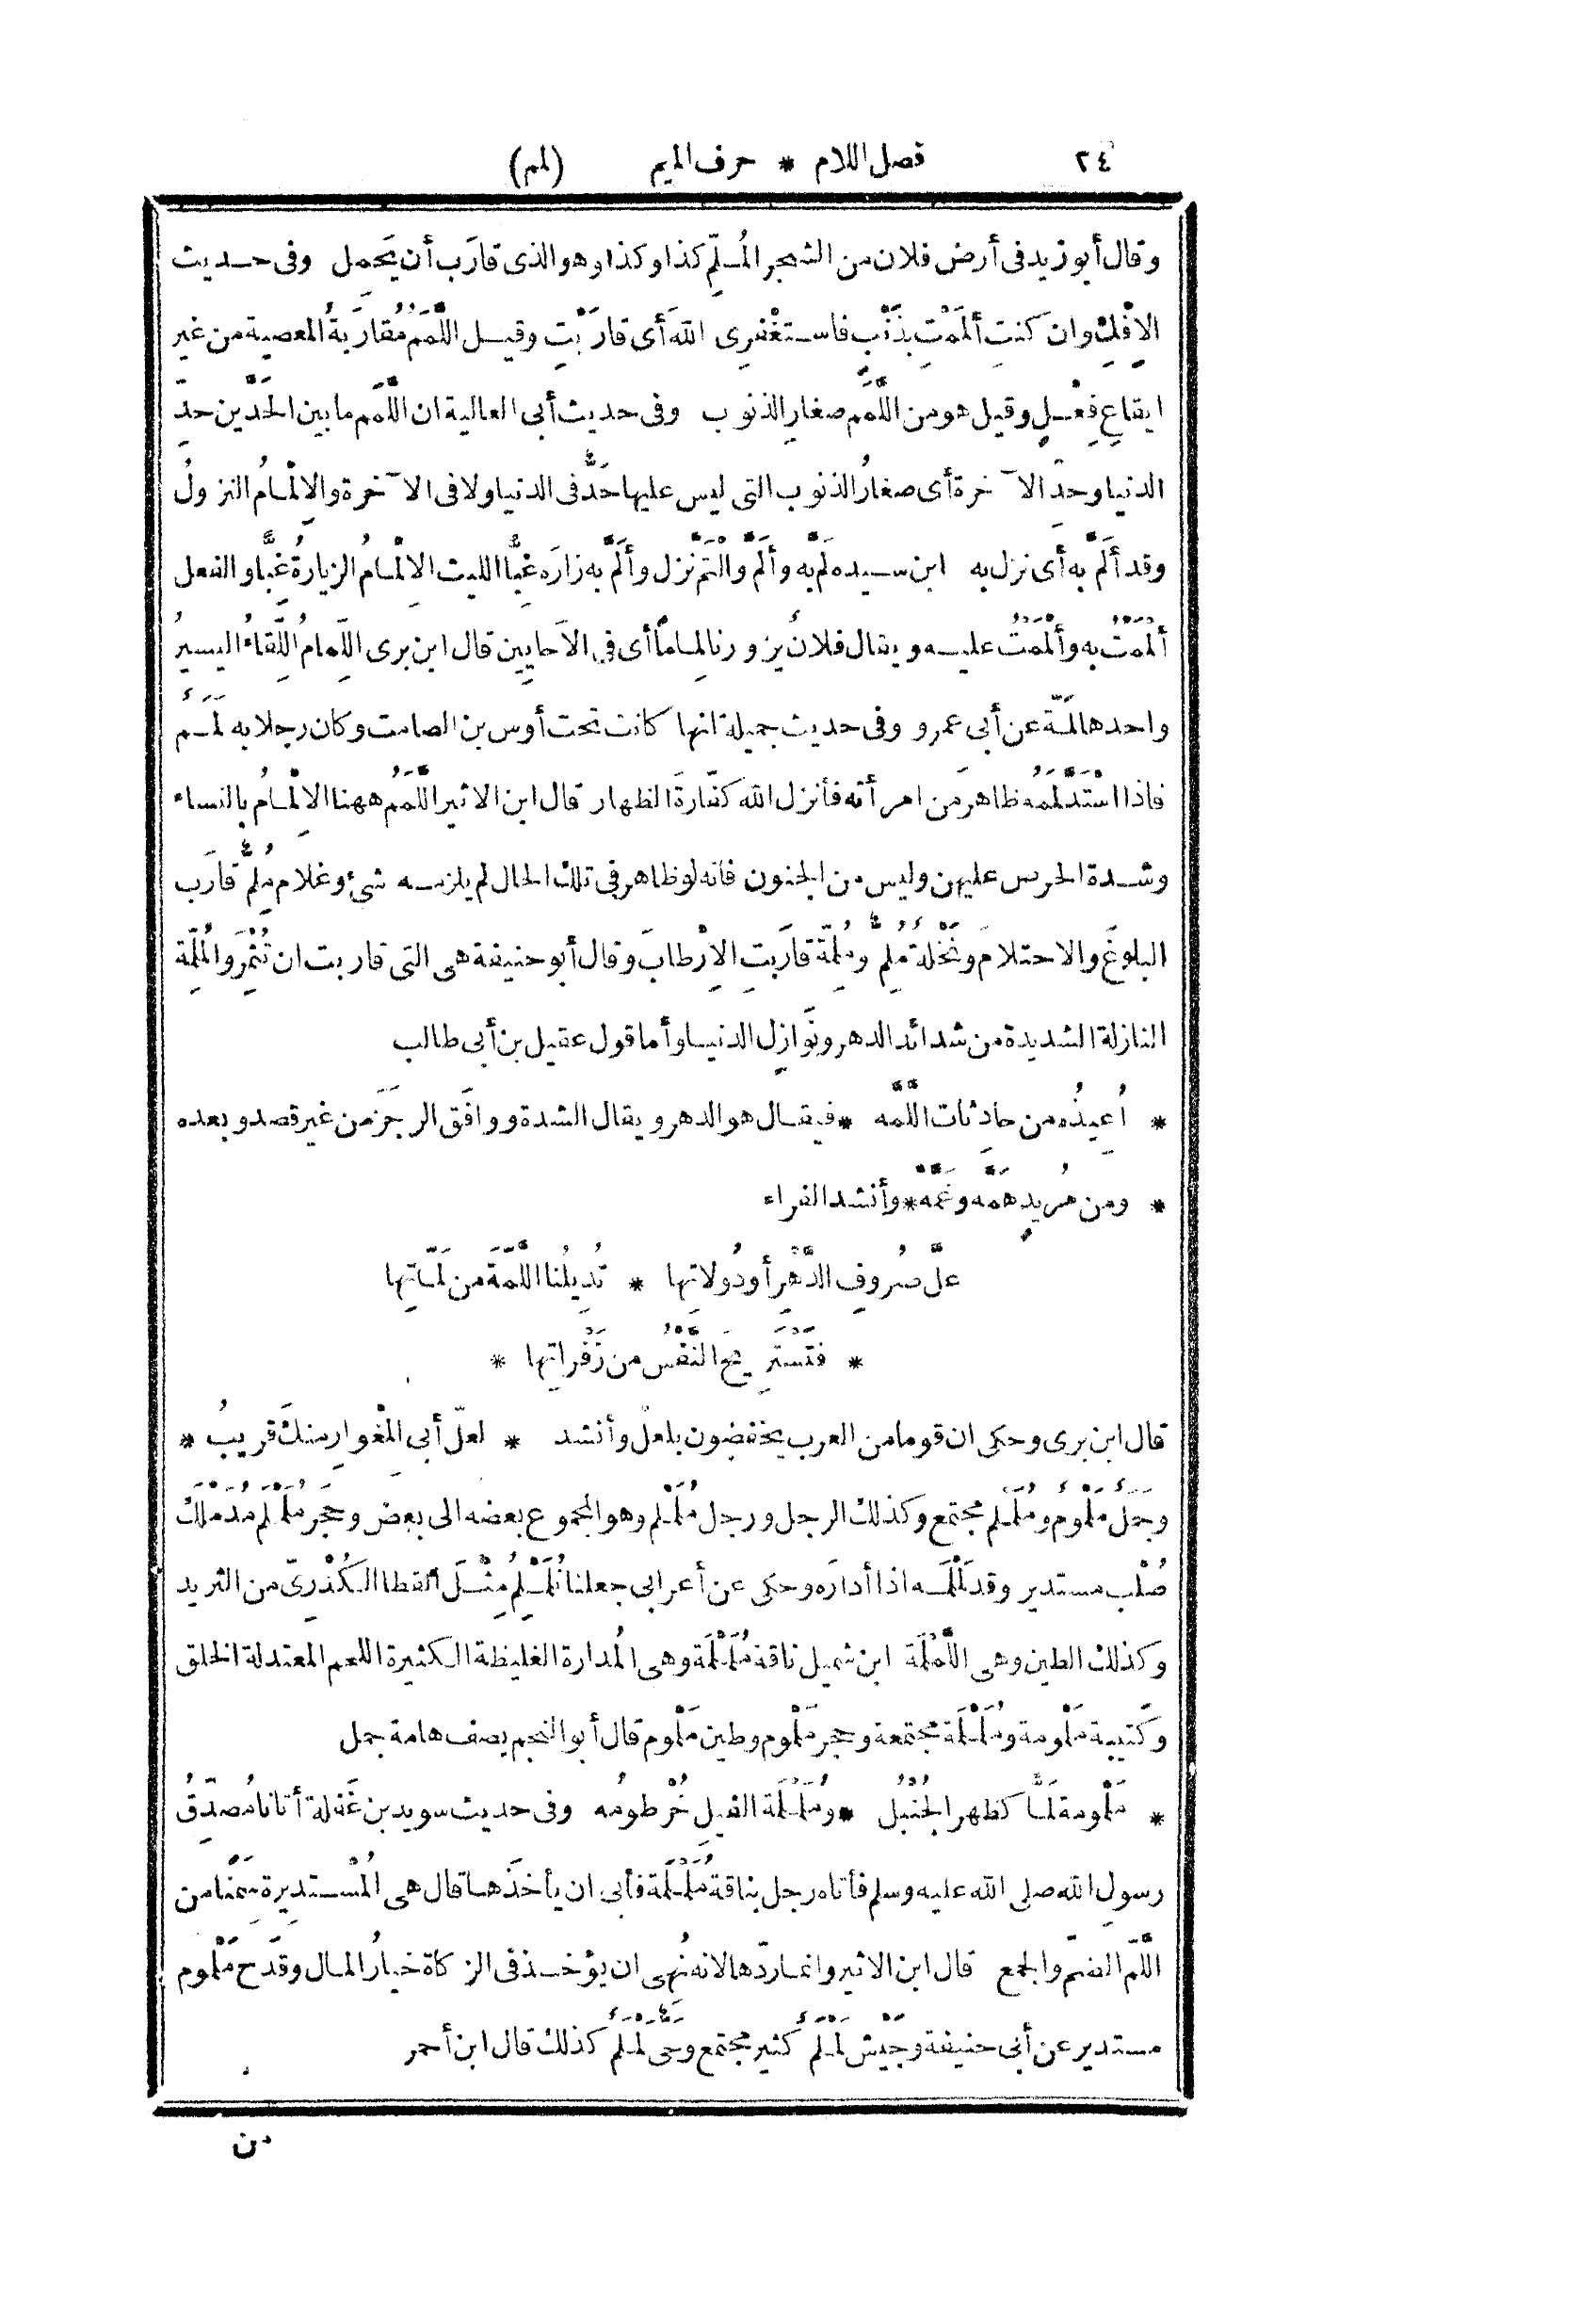 ٢٤ فصل اللام * حرف الميم (لمم)
وقال أبو زيد فى أرض فلان من الشجر المُلِمّ كذا وكذا وهو الذى قارَب أن يَحمل وفى حديث
الاِفْكِ وان كنتِ ألْمَمْتِ بذَنْبٍ فاستغْفِرِى اللهَ أى قارَبْتِ وقيل اللَّمَمُ مُقارَبةُ المعصية من غير
ايقاعِ فِعْلٍ وقيل هو من اللَّمَم صغارِ الذنوب وفى حديث أبى العالية ان اللَّمَم ما بين الحَدَّين حدِّ
الدنيا وحدِّ الآخرة أى صغارُ الذنوب التى ليس عليها حَدٌّ فى الدنيا ولا فى الآخرة والاِلْمامُ النزولُ
وقد أَلَمَّ به أى نزل به ابن سيده لَمَّ به وأَلَمَّ والْتَمَّ نزل وأَلَمَّ به زارَه غِبًّا الليث الاِلْمامُ الزيارةُ غِبًّا والفعل
ألْمَمْتُ به وألْمَمْتُ عليه ويقال فلانٌ يَزورنا لِمامًا أى فى الأَحايِين قال ابن برى اللِّمامُ اللِّقاءُ اليسيرُ
واحدها لَمّة عن أبى عمرو وفى حديث جميلة انها كانت تحت أوس بن الصامت وكان رجلا به لَمَمٌ
فاذا اشْتَدَّ لَمَمُه ظاهَر من امرأته فأنزل الله كفّارةَ الظهار قال ابن الاثير اللَّمَمُ ههنا الاِلْمامُ بالنساء
وشدة الحرص عليهن وليس من الجنون فانه لو ظاهر فى تلك الحال لم يلزمه شئ وغلام مُلِمٌّ قارَب
البلوغَ والاحتلامَ ونَخْلةٌ مُلِمٌّ ومُلِمّة قارَبتِ الاِرْطابَ وقال أبو حنيفة هى التى قاربت ان تُثْمِرَ والمُلِمّة
النازلة الشديدة من شدائد الدهر ونَوازِل الدنيا وأما قول عقيل بن أبى طالب
* أُعِيذُه من حادِثات اللَّمَّه * فيقال هو الدهر ويقال الشدة ووافَق الرجَزَ من غير قصد وبعده
* ومن مُريدٍ هَمَّه وغَمَّه * وأنشد الفراء
علَّ صُروفِ الدَّهْرِ أو دُولاتِها * تُدِيلُنا اللَّمّةَ من لَمّاتِها
* فتَسْتَرِيحَ النَّفْسُ من زَفْراتِها *
قال ابن برى وحكى ان قوما من العرب يخفضون بلعلّ وأنشد * لعلّ أبى المِغْوارِ منكَ قريبُ *
وجَمَلٌ مَلْمومٌ ومُلَمْلَم مجتمع وكذلك الرجل ورجل مُلَمْلَم وهو المجموع بعضه الى بعض وحَجَر مُلَمْلَم مُدَمْلَك
صُلْب مستدير وقد لَمْلَمه اذا أدارَه وحكى عن أعرابى جعلنا نُلَمْلِمُ مِثْلَ القطا الكُدْرِىّ من الثريد
وكذلك الطين وهى اللَّمْلَمة ابن شميل ناقة مُلَمْلَمة وهى المُدارة الغليظة الكثيرة اللحم المعتدلة الخلق
وكَتيبة مَلْمومة ومُلَمْلَمة مجتمعة وحجر مَلْموم وطين مَلْموم قال أبو النجم يصف هامة جمل
* مَلْمومة لَمًّا كظهر الجُنْبُل * ومُلَمْلَمة الفيلِ خُرْطومُه وفى حديث سويد بن غَفَلة أتانا مُصدِّقُ
رسولِ الله صلى الله عليه وسلم فأتاه رجل بناقة مُلَمْلَمة فأبى ان يأخذَها قال هى المُسْتديِرة سِمَنًا من
اللَّمّ الضمّ والجمع قال ابن الاثير وانما ردّها لانه نُهِى ان يؤخذ فى الزكاة خيارُ المال وقَدَح مَلْموم
مستدير عن أبى حنيفة وجَيْش لَمْلَمٌ كثير مجتمع وحَىٌّ لَمْلَمٌ كذلك قال ابن أحمر
من